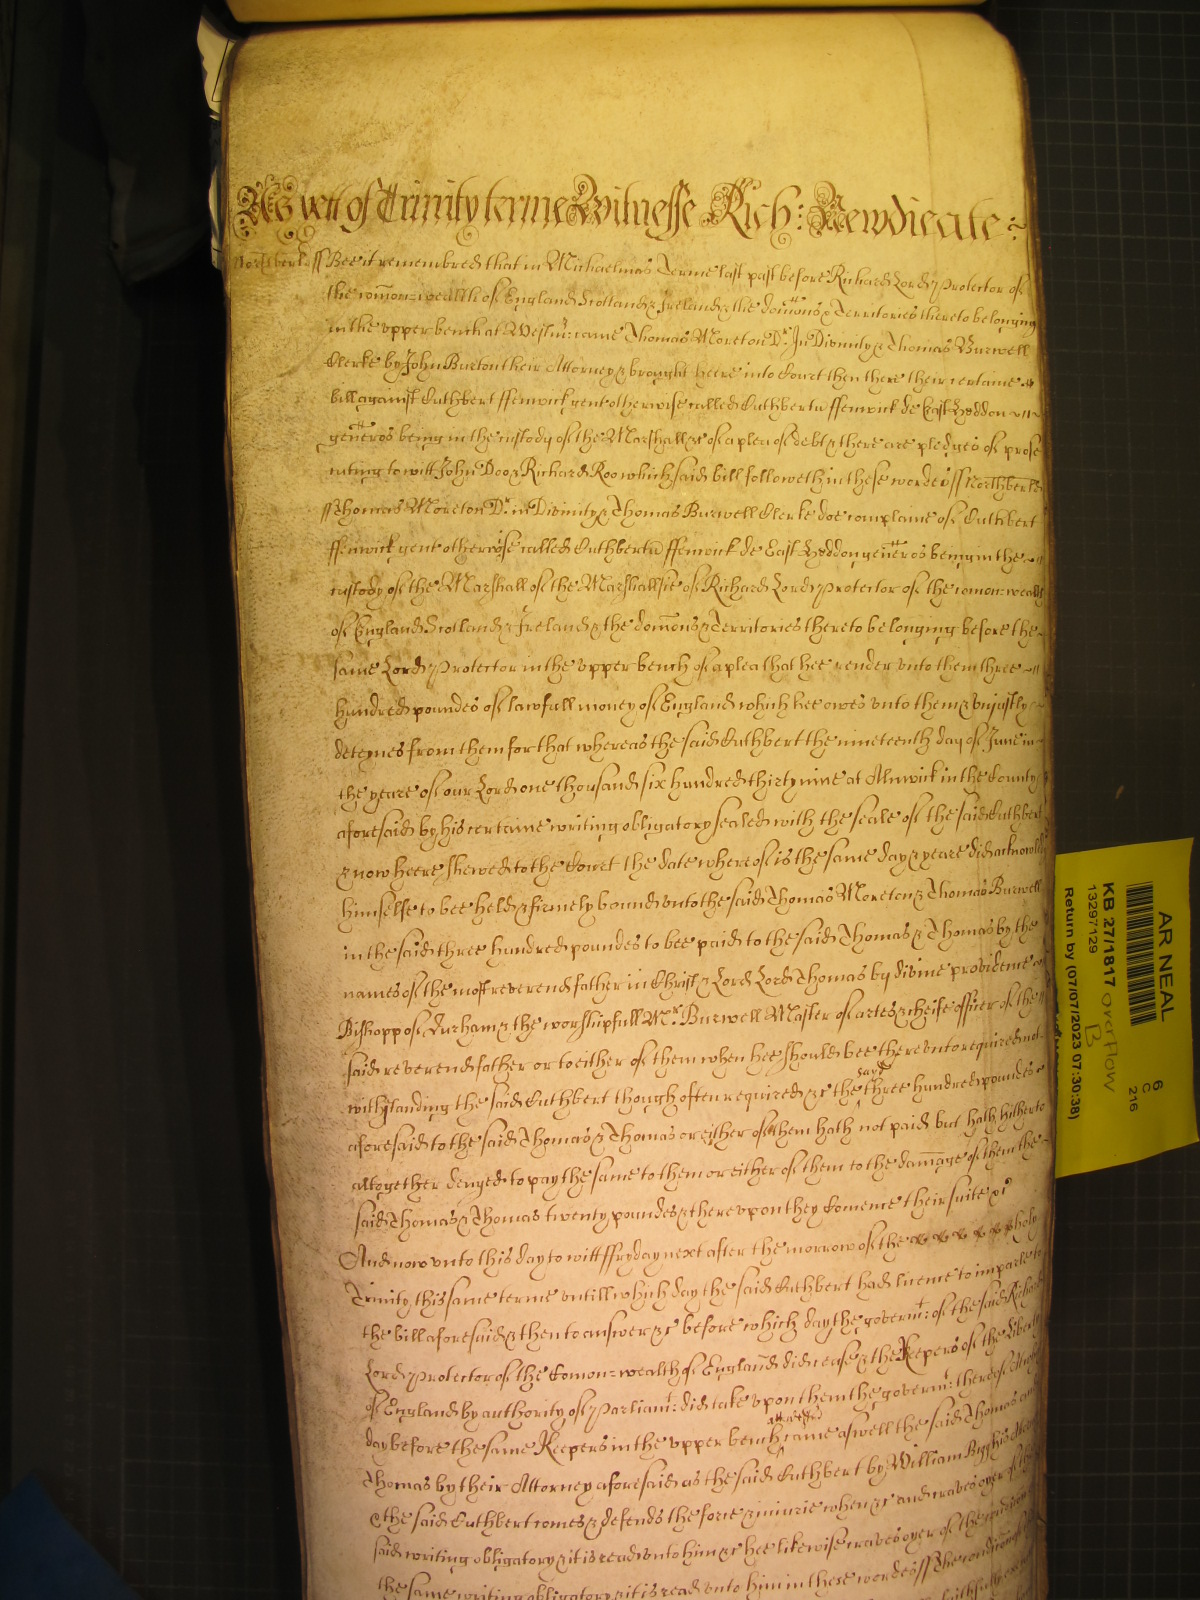 As yett of Trinity terme Witnesse Rich: Newdicate:
Northberl ss Bee it remembred that in Michaelmas Terme last past before Richard Lord Protector of
the comon=wealth of England Scotland & Ireland & the domions & Territories thereto belonging
in the vpper bench at Westmr: came Thomas Moreton Dr. In Divinity & Thomas Burwell
Clerke by John Burton their Attorney & brought heere into Court then there their certaine
bill against Cuthbert ffenwick gent otherwise called Cuthbertu ffenwick de East Heddon
generos being in the custody of the Marshall &c of a plea of debt & there are pledges of prose
cuting to witt John Doo & Richard Roo which said bill followeth in these wordes ss Northberl
ss Thomas Moreton Dr. in Divinity & Thomas Burwell Clerke doe complaine of Cuthbert
ffenwick gent otherwise called Cuthbertu ffenwick de East Heddon generos being in the
custody of the Marshall of the Marshallsie of Richard Lord Protector of the comon=wealth
of England Scotland & Ireland & the domions & Territories thereto belonging before the
same Lord Protector in the vpper bench of a plea that hee render vnto them three
hundred poundes of lawfull money of England which hee owes vnto them & vniustly
deteynes from them for that whereas the said Cuthbert the nineteenth day of June in
the yeare of our Lord one thousand six hundred thirty nine at Alnwick in the County
aforesaid by his certaine writing obligatory sealed with the seale of the said Cuthbert
& now heere shewed to the Court the date whereof is the same day & yeare did acknowl
himselfe to bee held & firmely bound vnto the said Thomas Moreton & Thomas Burwell
in the said three hundred poundes to bee paid to the said Thomas & Thomas by the
names of the most reverend father in Christ & Lord Lord Thomas by divine providence
Bishopp of Durham & the worshipfull Mr. Burwell Master of artes & cheife officer of the
said reverend father or to either of them when hee should bee therevnto required not
withstanding the said Cuthbert though often required &c the sayd three hundred poundes
aforesaid to the said Thomas & Thomas or either of them hath not paid but hath hitherto
altogether denyed to pay the same to them or either of them to the damage of them the
said Thomas & Thomas twenty poundes & therevpon they comence their suite &c
And now vnto this day to witt ffryday next after the morrow of the holy
Trinity this same terme vntill which day the said Cuthbert had licence to imparle to
the bill aforesaid & then to answer &c before which day the governt: of the said Richard
Lord Protector of the Comon=wealth of England did cease & the Keepers of the Liberty
of England by authority of Parliamt: did take vpon them the governt: thereof
day before the same Keepers in the vpper bench aforesaid came aswell the said Thomas and
Thomas by their Attorney aforesaid as the said Cuthbert by William Bigg his Attorney
& the said Cuthbert comes & defends the force & iniurie when &c and craves oyer of the
said writing obligatory & it is read vnto him &c hee likewise craves oyer of the condicion
the same writing obligatory & it is read vnto him in these wordes ss The condicion
AR NEAL
6
C
216
KB 27/1817 overflow
B
13297129
Return by (07/07/2023 07:30:38)